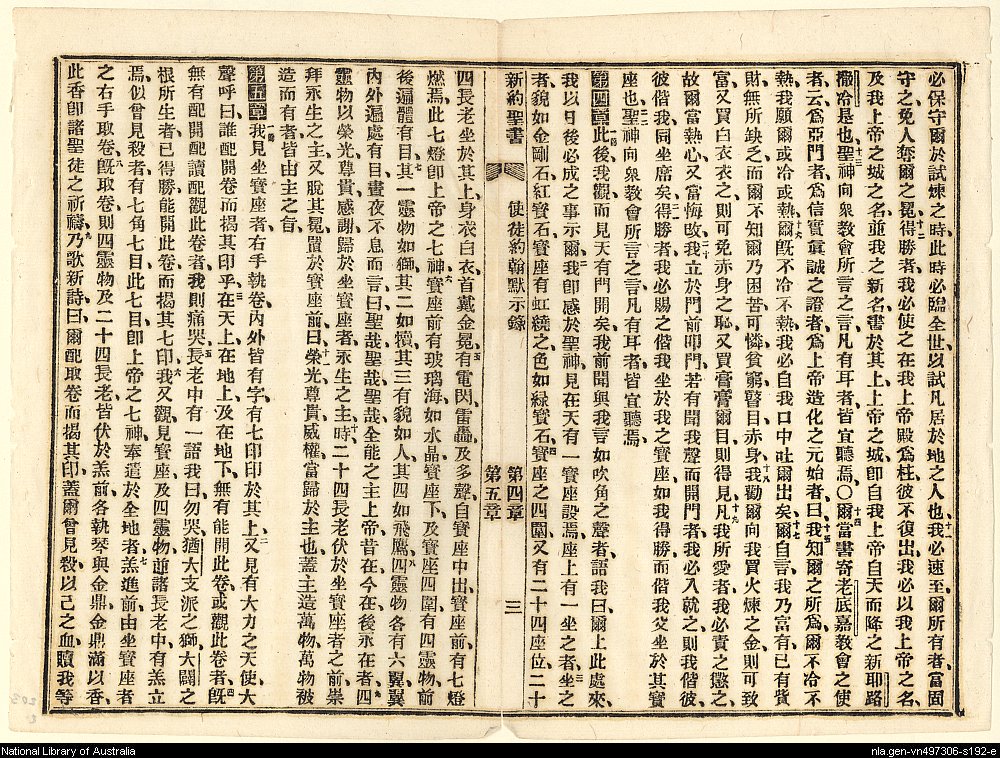 必保守爾於試煉之時此時必臨全世以試凡居於地之人也十一我必速至爾所有者當固
守之免人奪爾之冕十二得勝者我必使之在我上帝殿爲柱彼不復出我必以我上帝之名
及我上帝之城之名並我之新名書於其上上帝之城卽自我上帝自天而降之新耶路
撒冷是也十三聖神向衆敎會所言之言凡有耳者皆宜聽焉〇十四爾當書寄老底嘉敎會之使
者云爲亞門者爲信實眞誠之證者爲上帝造化之元始者曰十五我知爾之所爲爾不冷不
熱我願爾或冷或熱十六爾旣不冷不熱我必自我口中吐爾出矣十七爾自言我乃富有已有貲
財無所缺乏而爾不知爾乃困苦可憐貧窮瞽目赤身十八我勸爾向我買火煉之金則可致
富又買白衣衣之則可免赤身之恥又買膏膏爾目則得見十九凡我所愛者我必責之懲之
故爾當熱心又當悔改二十我立於門前叩門若有聞我聲而開門者我必入就之則我偕彼
彼偕我同坐席矣二一得勝者我必賜之偕我坐於我之寶座如我得勝而偕我父坐於其寶
座也二二聖神向衆敎會所言之言凡有耳者皆宜聽焉
第四章一節此後我觀而見天有門開矣我前聞與我言如吹角之聲者語我曰爾上此處來
我以日後必成之事示爾二我卽感於聖神見在天有一寶座設焉座上有一坐之者三坐之
者貌如金剛石紅寶石寶座有虹繞之色如綠寶石四寶座之四圍又有二十四座位二十
新約聖書 使徒約翰默示錄 第四章 第五章 三
四長老坐於其上身衣白衣首戴金冕五有電閃雷轟及多聲自寶座中出寶座前有七燈
燃焉此七燈卽上帝之七神六寶座前有玻璃海如水晶寶座下及寶座四圍有四靈物前
後遍體有目七其一靈物如獅其二如犢其三有貌如人其四如飛鷹八四靈物各有六翼翼
內外遍處有目晝夜不息而言曰聖哉聖哉聖哉全能之主上帝昔在今在後永在者九四
靈物以榮光尊貴感謝歸於坐寶座者永生之主十時二十四長老伏於坐寶座者之前崇
拜永生之主又脫其冕置於寶座前曰十一榮光尊貴威權當歸於主也蓋主造萬物萬物被
造而有者皆由主之旨
第五章一節我見坐寶座者右手執卷內外皆有字有七印印於其上二又見有大力之天使大
聲呼曰誰配開卷而揭其印乎三在天上在地上及在地下無有能開此卷或觀此卷者四旣
無有配開配讀配觀此卷者我則痛哭五長老中有一語我曰勿哭猶大支派之獅大闢之
根所生者已得勝能開此卷而揭其七印六我又觀見寶座及四靈物並諸長老中有羔立
焉似曾見殺者有七角七目此七目卽上帝之七神奉遣於全地者七羔進前由坐寶座者
之右手取卷八旣取卷則四靈物及二十四長老皆伏於羔前各執琴與金鼎金鼎滿以香
此香卽諸聖徒之祈禱九乃歌新詩曰爾配取卷而揭其印蓋爾曾見殺以己之血贖我等
National Library of Australia
nla.gen-vn497306-s192-e